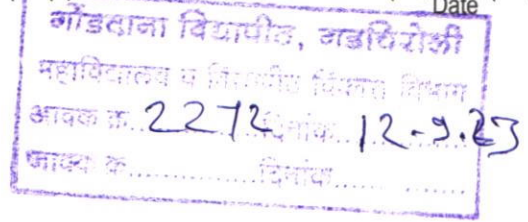 Date
गोंडवाना विद्यापीठ, गडचिरोली
महाविद्यालय व विद्यापीठ विकास विभाग
आवक क्र. 2272 दिनांक 12-9-23
जावक क्र. ............... दिनांक ...............